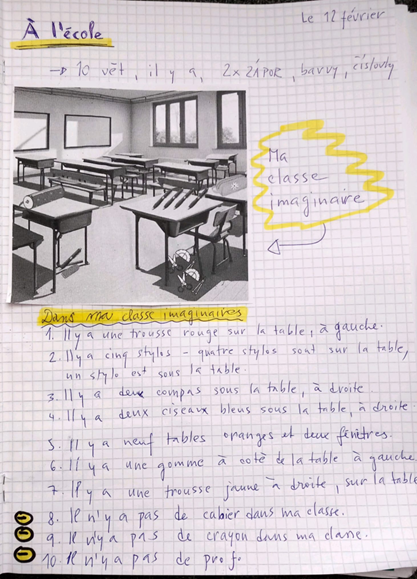 Le 12 février
À l'école
→ 10 vět, il y a, 2x ZÁPOR, barvy, číslovky
Ma
classe
imaginaire
Dans ma classe imaginaires
1. Il y a une trousse rouge sur la table, à gauche.
2. Il y a cinq stylos - quatre stylos sont sur la table,
un stylo est sous la table.
3. Il y a deux compas sous la table, à droite
4. Il y a deux ciseaux bleus sous la table, à droite
5. Il y a neuf tables oranges et deux fenêtres.
6. Il y a une gomme à coté de la table à gauche
7. Il y a une trousse jaune à droite, sur la table
8. Il n'y a pas de cahier dans ma classe.
9. Il n'y a pas de crayon dans ma classe.
10. Il n'y a pas de prof.